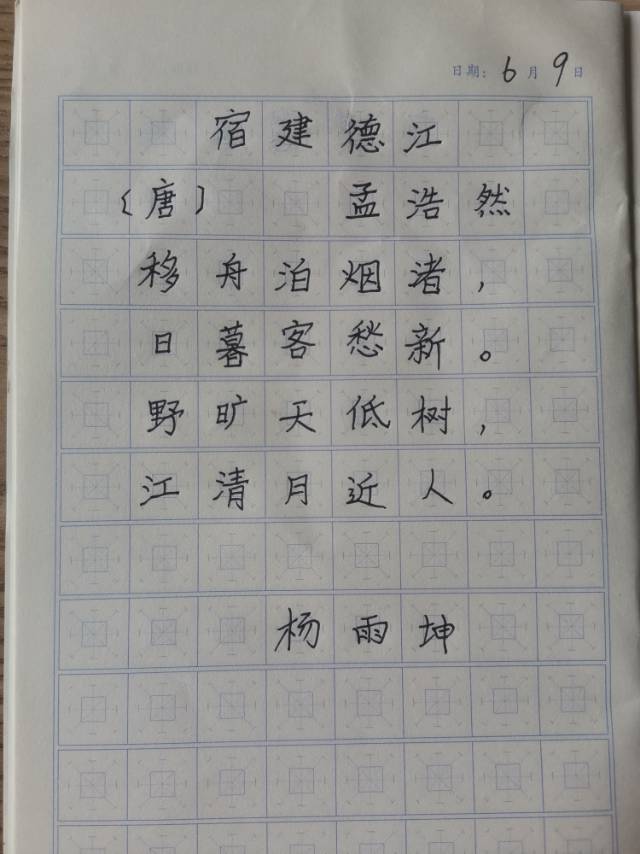 日期: 6月9日
宿建德江
〔唐〕 孟浩然
移舟泊烟渚，
日暮客愁新。
野旷天低树，
江清月近人。
杨雨坤